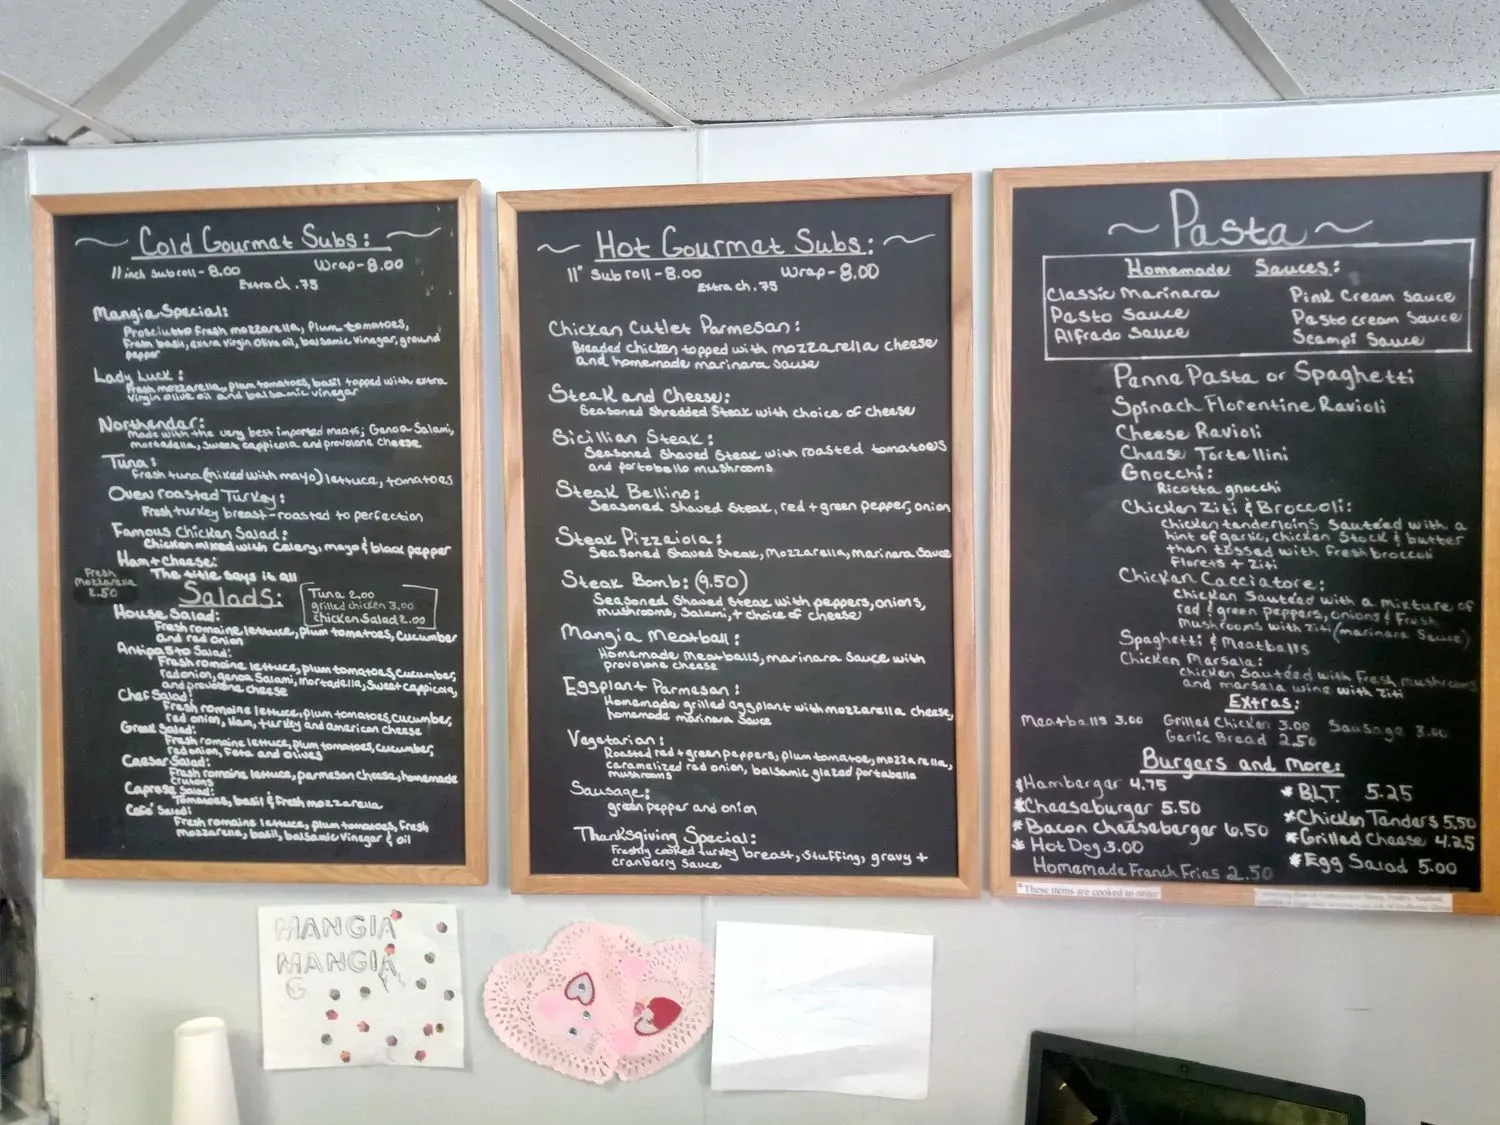 Cold Gourmet Subs:
11 inch Sub roll - 8.00 Wrap - 8.00
Extra ch .75
Mangia Special:
Prosciutto Fresh mozzarella, Plum tomatoes,
Fresh basil, extra virgin olive oil, balsamic vinegar, ground
pepper
Lady Luck:
Fresh mozzarella, plum tomatoes, basil topped with extra
virgin olive oil and balsamic vinegar
Northender:
Made with the very best imported meats; Genoa Salami,
mortadella, sweet cappicola and provolone cheese
Tuna:
Fresh tuna (mixed with mayo) lettuce, tomatoes
Oven roasted Turkey:
Fresh turkey breast-roasted to perfection
Famous Chicken Salad:
Chicken mixed with Celery, mayo & black pepper
Ham + Cheese:
The title says it all
Fresh
Mozzarella
2.50
Salads:
Tuna 2.00
grilled chicken 3.00
chicken Salad 2.00
House Salad:
Fresh romaine lettuce, plum tomatoes, cucumber
and red onion
Antipasto Salad:
Fresh romaine lettuce, plum tomatoes, cucumber,
red onion, genoa Salami, Mortadella, Sweet cappicola,
and provolone cheese
Chef Salad:
Fresh romaine lettuce, plum tomatoes, cucumber,
red onion, Ham, turkey and american cheese
Greek Salad:
Fresh romaine lettuce, plum tomatoes, cucumber,
red onion, Feta and olives
Caesar Salad:
Fresh romaine lettuce, parmesan cheese, homemade
crutons
Caprese Salad:
Tomatoes, basil & Fresh mozzarella
Café Salad:
Fresh romaine lettuce, plum tomatoes, Fresh
mozzarella, basil, balsamic vinegar & oil
Hot Gourmet Subs:
11" Sub roll - 8.00 Wrap - 8.00
Extra ch .75
Chicken Cutlet Parmesan:
Breaded chicken topped with mozzarella cheese
and homemade marinara sause
Steak and Cheese:
Seasoned Shredded Steak with choice of cheese
Sicillian Steak:
Seasoned Shaved Steak with roasted tomatoes
and portobello mushrooms
Steak Bellino:
Seasoned Shaved Steak, red + green pepper, onion
Steak Pizzaiola:
Seasoned Shaved Steak, Mozzarella, Marinara Sauce
Steak Bomb: (9.50)
Seasoned Shaved Steak with peppers, onions,
mushrooms, Salami, + choice of cheese
Mangia Meatball:
Homemade Meatballs, marinara Sauce with
provolone cheese
Eggplant Parmesan:
Homemade grilled eggplant with mozzarella cheese,
homemade marinara Sauce
Vegetarian:
Roasted red + green peppers, plum tomatoe, mozzarella,
caramelized red onion, balsamic glazed portabella
mushrooms
Sausage:
green pepper and onion
Thanksgiving Special:
Freshly cooked turkey breast, Stuffing, gravy +
cranberry Sauce
Pasta
Homemade Sauces:
Classic Marinara Pink Cream Sauce
Pasto Sauce Pasto cream Sauce
Alfrado Sauce Scampi Sauce
Penne Pasta or Spaghetti
Spinach Florentine Ravioli
Cheese Ravioli
Cheese Tortellini
Gnocchi:
Ricotta gnocchi
Chicken Ziti & Broccoli:
Chicken tenderloins Sautéed with a
hint of garlic, chicken Stock & butter
then tossed with Fresh broccoli
Florets + Ziti
Chicken Cacciatore:
Chicken Sautéed with a mixture of
red & green peppers, onions & Fresh
Mushrooms with Ziti (marinara Sauce)
Spaghetti & Meatballs
Chicken Marsala:
Chicken Sautéed with Fresh mushrooms
and marsala wine with Ziti
Extras:
Meatballs 3.00 Grilled Chicken 3.00 Sausage 3.00
Garlic Bread 2.50
Burgers and More:
*Hamberger 4.75 *BLT 5.25
*Cheeseburger 5.50 *Chicken Tenders 5.50
*Bacon Cheeseberger 6.50 *Grilled Cheese 4.25
*Hot Dog 3.00 *Egg Salad 5.00
Homemade French Fries 2.50
*These items are cooked to order
MANGIA
MANGIA
G